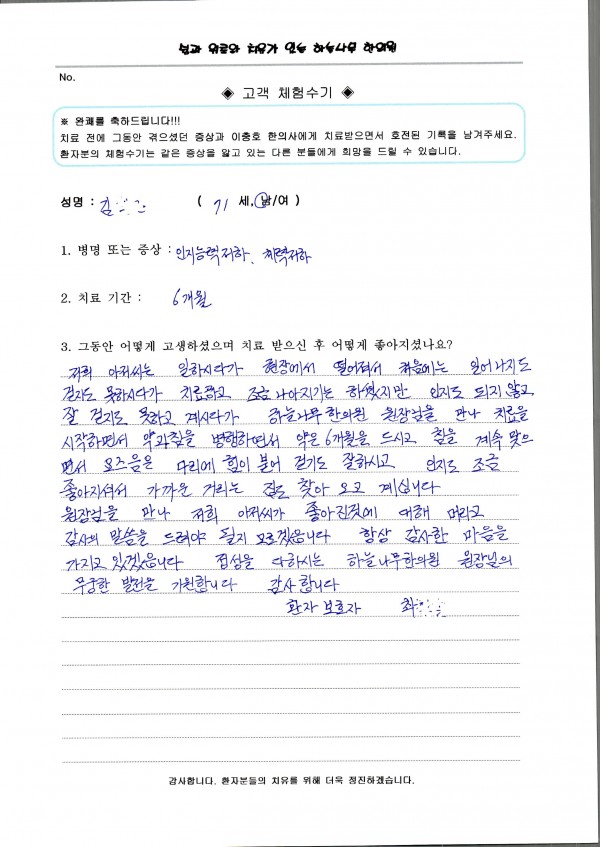 No.
◈ 고객 체험수기 ◈
※ 완쾌를 축하드립니다!!!
치료 전에 그동안 겪으셨던 증상과 이충호 한의사에게 치료받으면서 호전된 기록을 남겨주세요.
환자분의 체험수기는 같은 증상을 앓고 있는 다른 분들에게 희망을 드릴 수 있습니다.
성명 : 김 ( 71 세, 남/여 )
1. 병명 또는 증상 : 인지능력저하, 체력저하
2. 치료 기간 : 6개월
3. 그동안 어떻게 고생하셨으며 치료 받으신 후 어떻게 좋아지셨나요?
저희 아저씨는 일하시다가 현장에서 떨어져서 처음에는 일어나지도
걷자도 못하시다가 치료받고 조금 나아지기는 하셨지만 인지도 되지 않고
잘 걷지도 못하고 계시다가 하늘나무한의원 원장님을 만나 치료을
시작하면서 약과침을 병행하면서 약은 6개월을 드시고 침을 계속 맞으
면서 요즈음은 다리에 힘이 붙어 걷기도 잘하시고 인지도 조금
좋아지셔서 가까운 거리는 집도 찾아 오고 계십니다
원장님을 만나 저희 아저씨가 좋아진것에 대해 머라고
감사의 말씀을 드려야 될지 모르겠읍니다 항상 감사한 마음을
가지고 있겠읍니다 정성을 다하시는 하늘나무한의원 원장님의
무궁한 발전을 기원합니다 감사합니다
환자 보호자 최
감사합니다. 환자분들의 치유를 위해 더욱 정진하겠습니다.